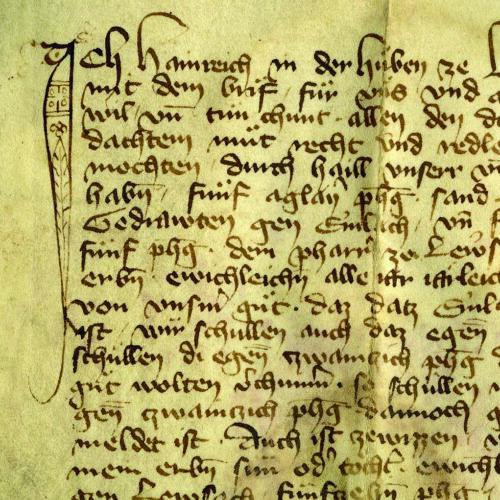 Ich Hainreich in der Hüben ze
mit dem brif für vns vnd
wil vn̄ tun chunt allen den
dachtem müt recht vnd redle
mochten durch haill vnserr
habn̄ fünf aglaÿ phg sand
Gedrawten gen vn̄
fünf phg dem pharr ze Lews
erbn̄ ewichleichn̄ alle iar
von vnsm̄ güt daz datz
ist wir schullen auch daz egen̄
schüllen di egen̄ zwaintzich phg
güt wolten so schullen
gen̄ zwaintzich phg dannoch
meldet ist Auch ist ze wizzen
mein erbn̄ sün od' tocht' ewichl
gen fünf